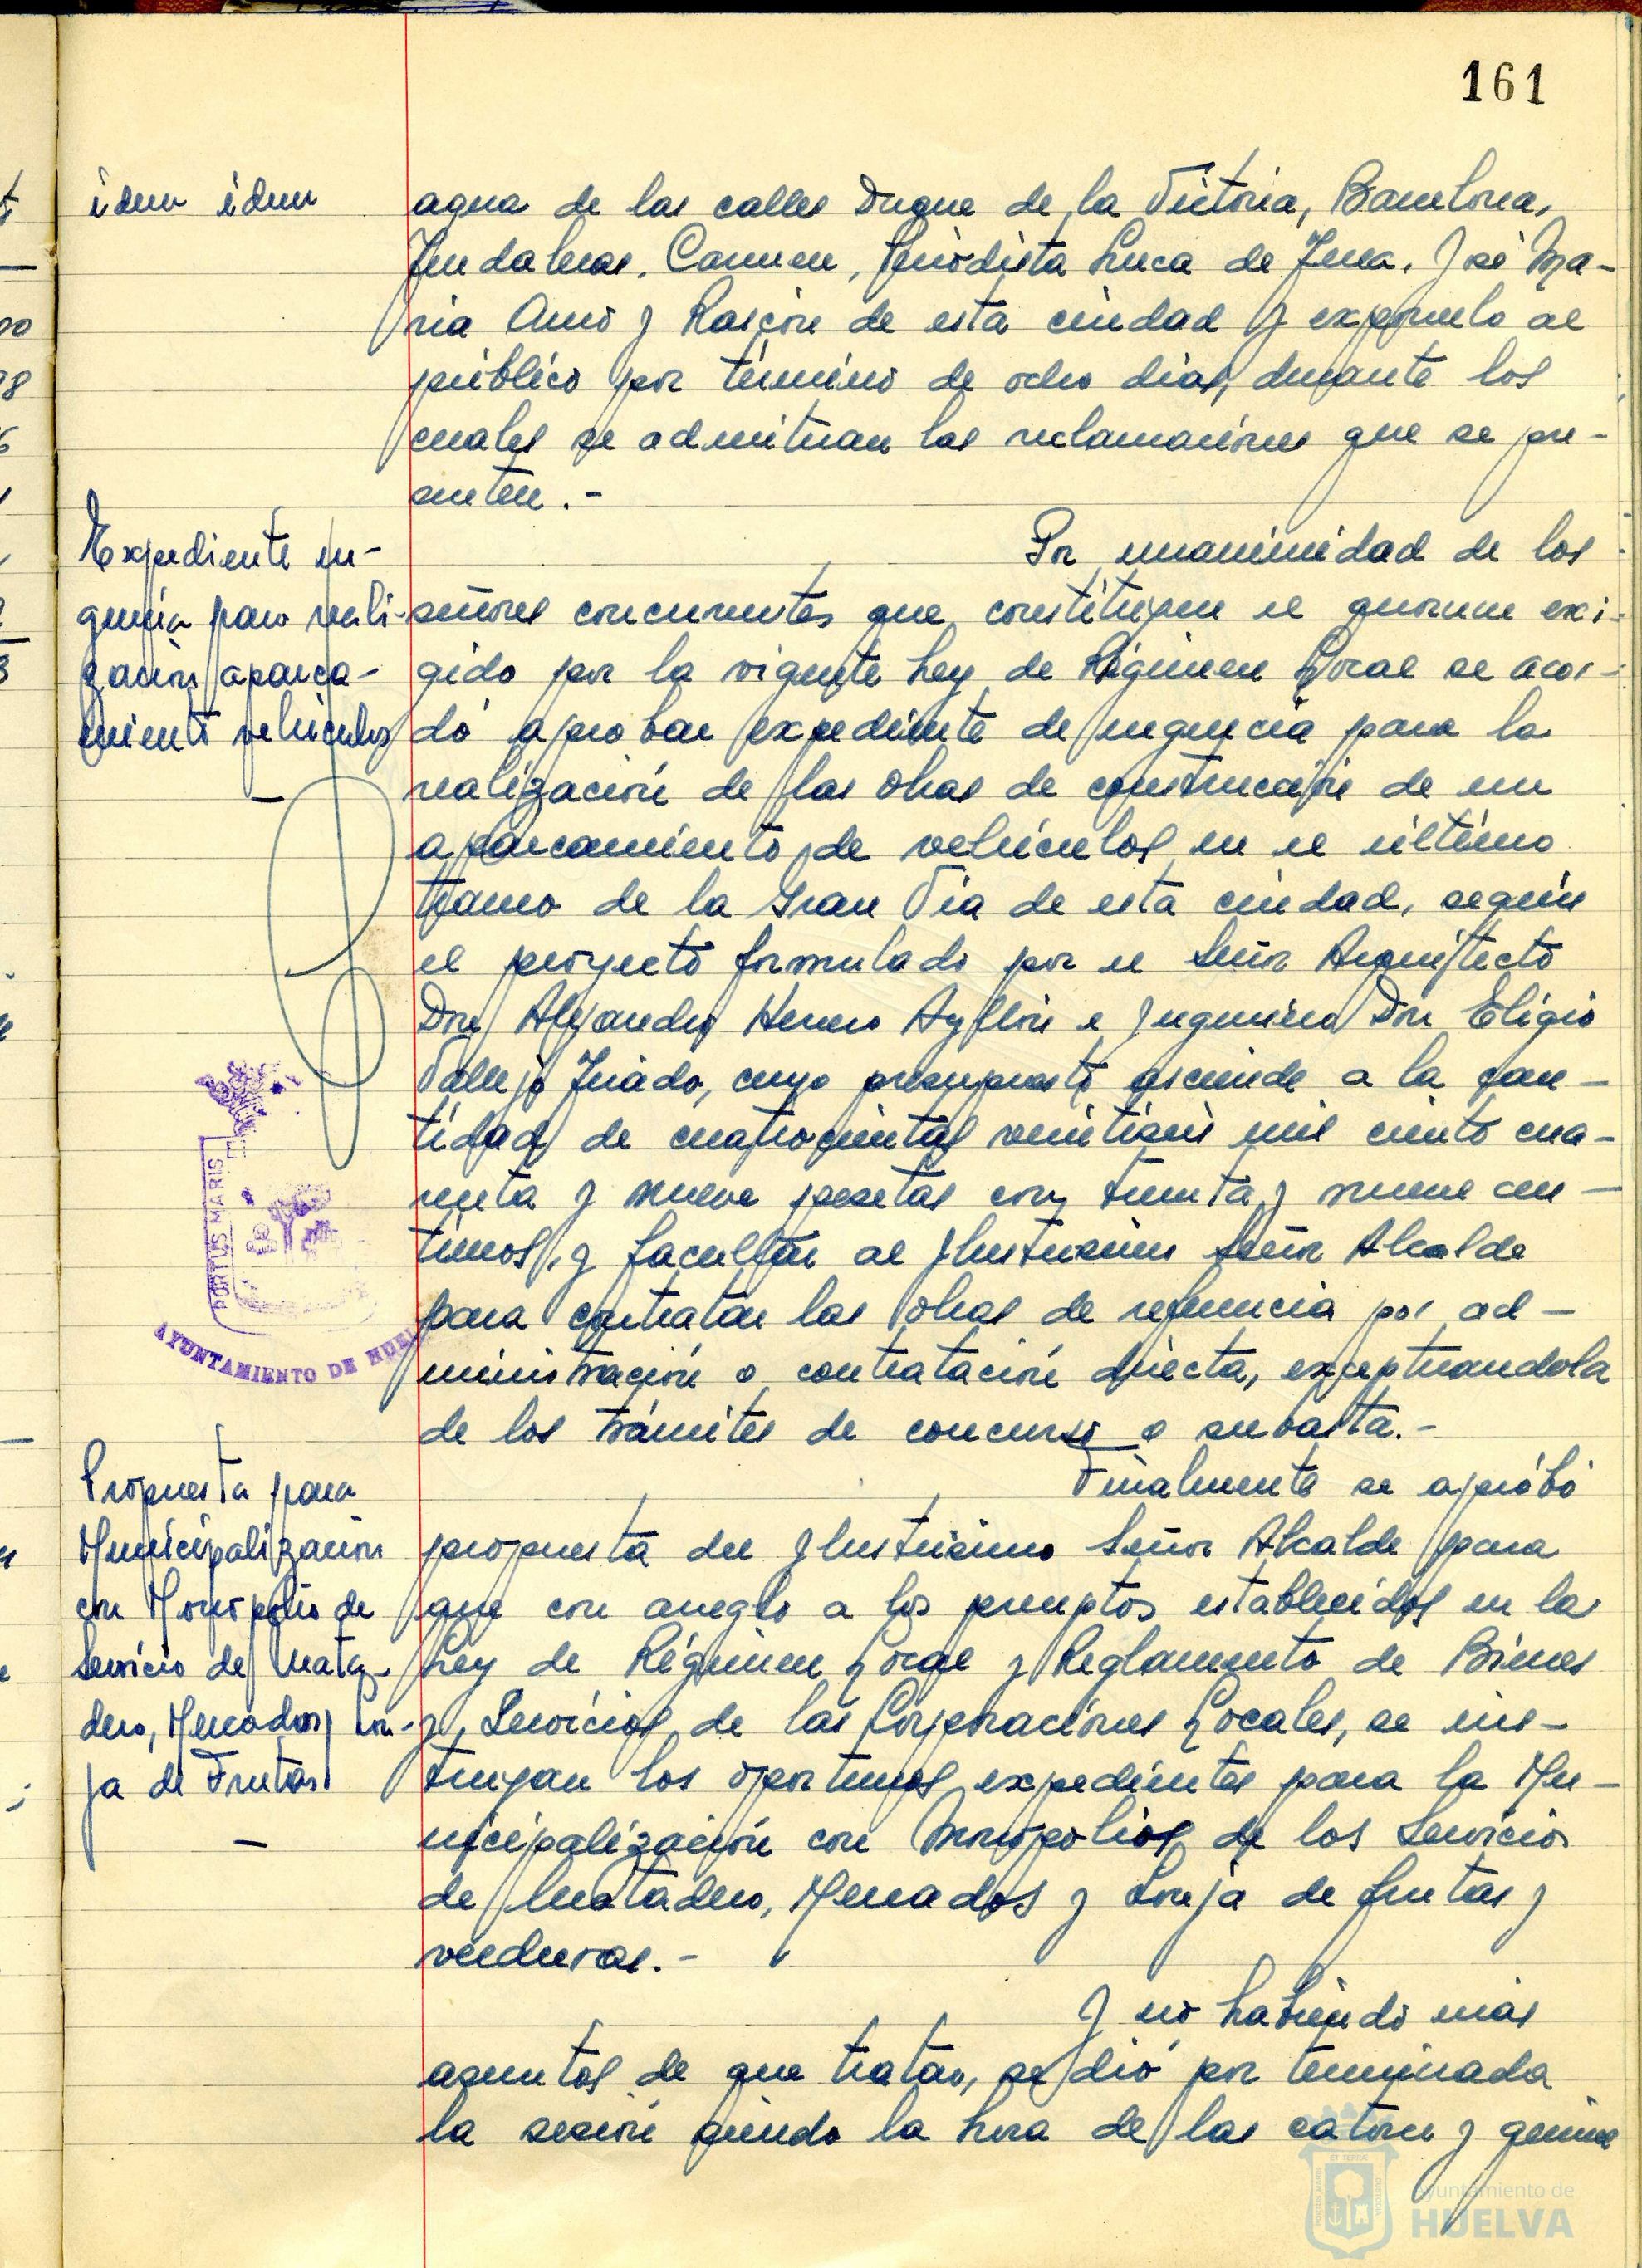 161
idem idem
agua de las calles Duque de la Victoria, Barcelona,
Fundadores, Carmen, Periodista Luca de Tena, José Ma-
ria Amo y Rascón de esta ciudad y exponerlo al
público por término de ocho dias, durante los
cuales se admitiran las reclamaciones que se pre-
senten.-
Expediente ur-
gencia para reali-
zación aparca-
miento vehiculos
—
Por unanimidad de los
señores concurrentes que constituyen el quorum exi-
gido por la vigente Ley de Régimen Local se acor-
dó aprobar expediente de urgencia para la
realización de las obras de construcción de un
aparcamiento de vehículos en el último
tramo de la Gran Via de esta ciudad, según
el proyecto formulado por el Señor Arquitecto
Don Alejandro Herrero Ayllón e Ingeniero Don Eligio
Vallejo Triado, cuyo presupuesto asciende a la can-
tidad de cuatrocientas veintiseis mil ciento cua-
renta y nueve pesetas con treinta y nueve cen-
timos, y facultar al Ilustrisimo Señor Alcalde
para contratar las obras de referencia por ad-
ministración o contratación directa, exceptuandola
de los trámites de concurso o subasta.-
PORTUS MARIS
AYUNTAMIENTO DE HUEL
Propuesta para
Municipalización
con Monopolio de
Servicio de Mata-
dero, Mercados y Lon-
ja de Frutas
—
Finalmente se aprobó
propuesta del Ilustrisimo Señor Alcalde para
que con arreglo a los preceptos establecidos en la
Ley de Régimen Local y Reglamento de Bienes
y Servicios de las Corporaciones Locales, se ins-
truyan los oportunos expedientes para la Mu-
nicipalización con Monopolios de los Servicios
de Matadero, Mercados y Lonja de frutas y
verduras.-
Y no habiendo más
asuntos de que tratar, se dió por terminada
la sesión siendo la hora de las catorce y quince
Ayuntamiento de
HUELVA